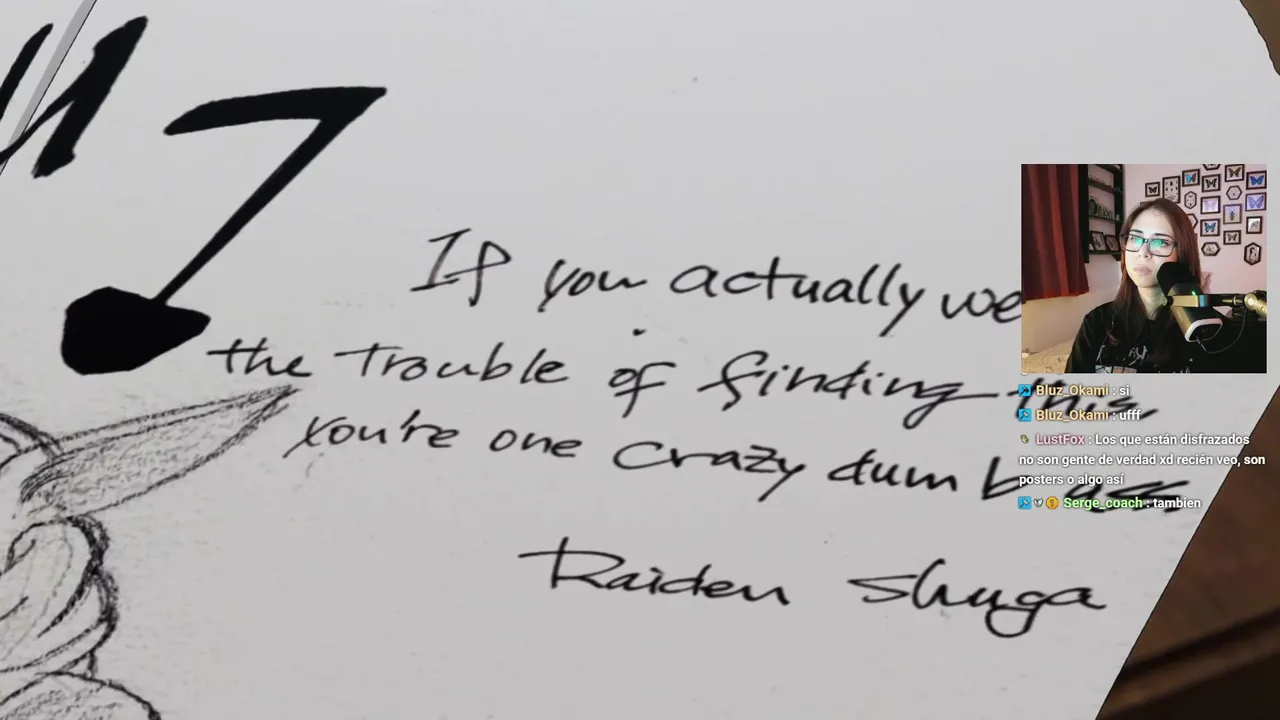 If you actually we
the trouble of finding this
You're one crazy dumb ass
Raiden Shuga
Bluz_Okami : si
Bluz_Okami : ufff
LustFox : Los que están disfrazados
no son gente de verdad xd recién veo, son
posters o algo así
Serge_coach : tambien